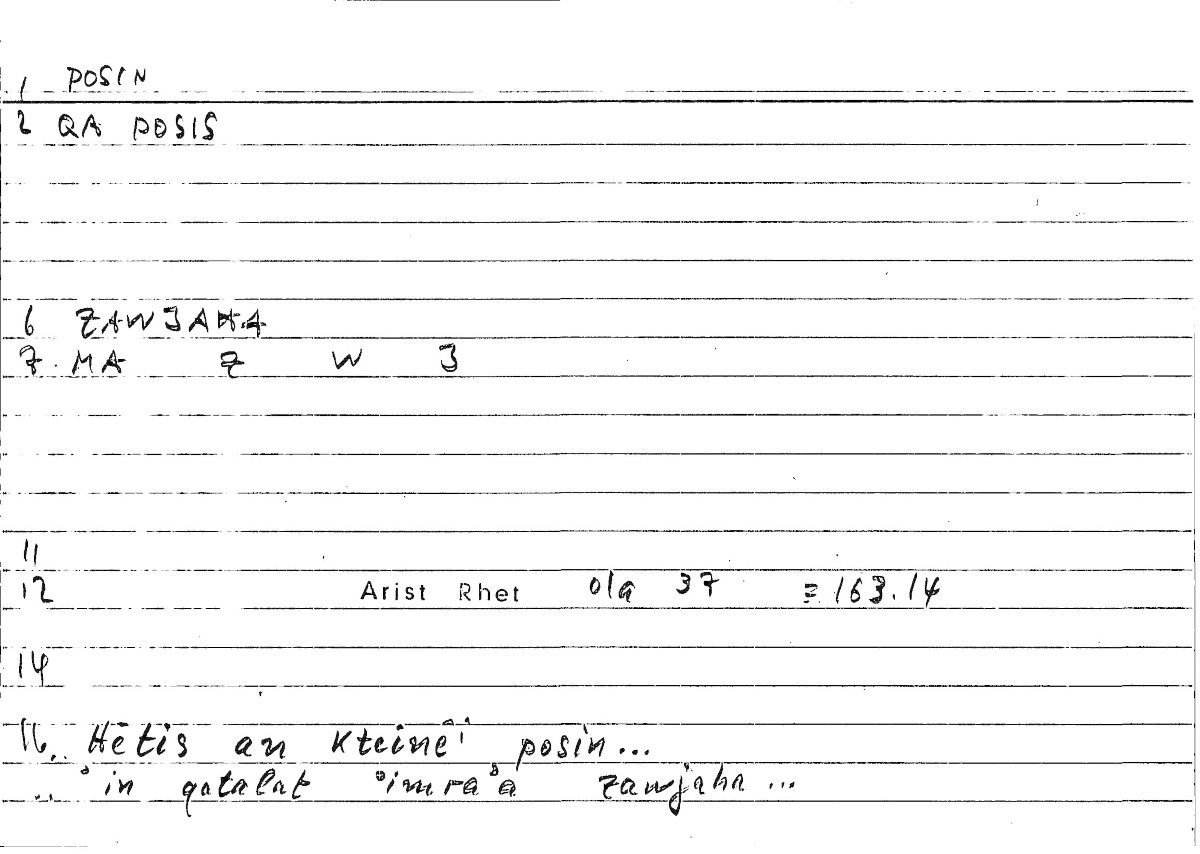 1 POSIN
2 QA POSIS
6 ZAWJAHA
7. MA Z W J
11
12 Arist Rhet 01a 37 = 163.14
14
16.. Hētis an kteinēi posin...
.. ʾin qatalat ʾimraʾa zawjaha ...